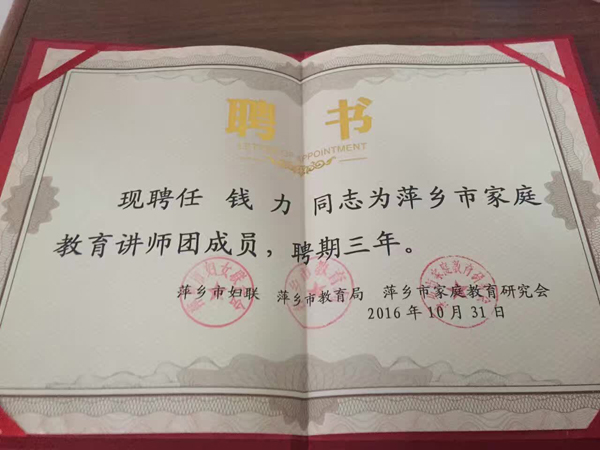 聘 书
LETTER OF APPOINTMENT
现聘任 钱 力 同志为萍乡市家庭
教育讲师团成员，聘期三年。
萍乡市妇联 萍乡市教育局 萍乡市家庭教育研究会
2016 年 10 月 31 日